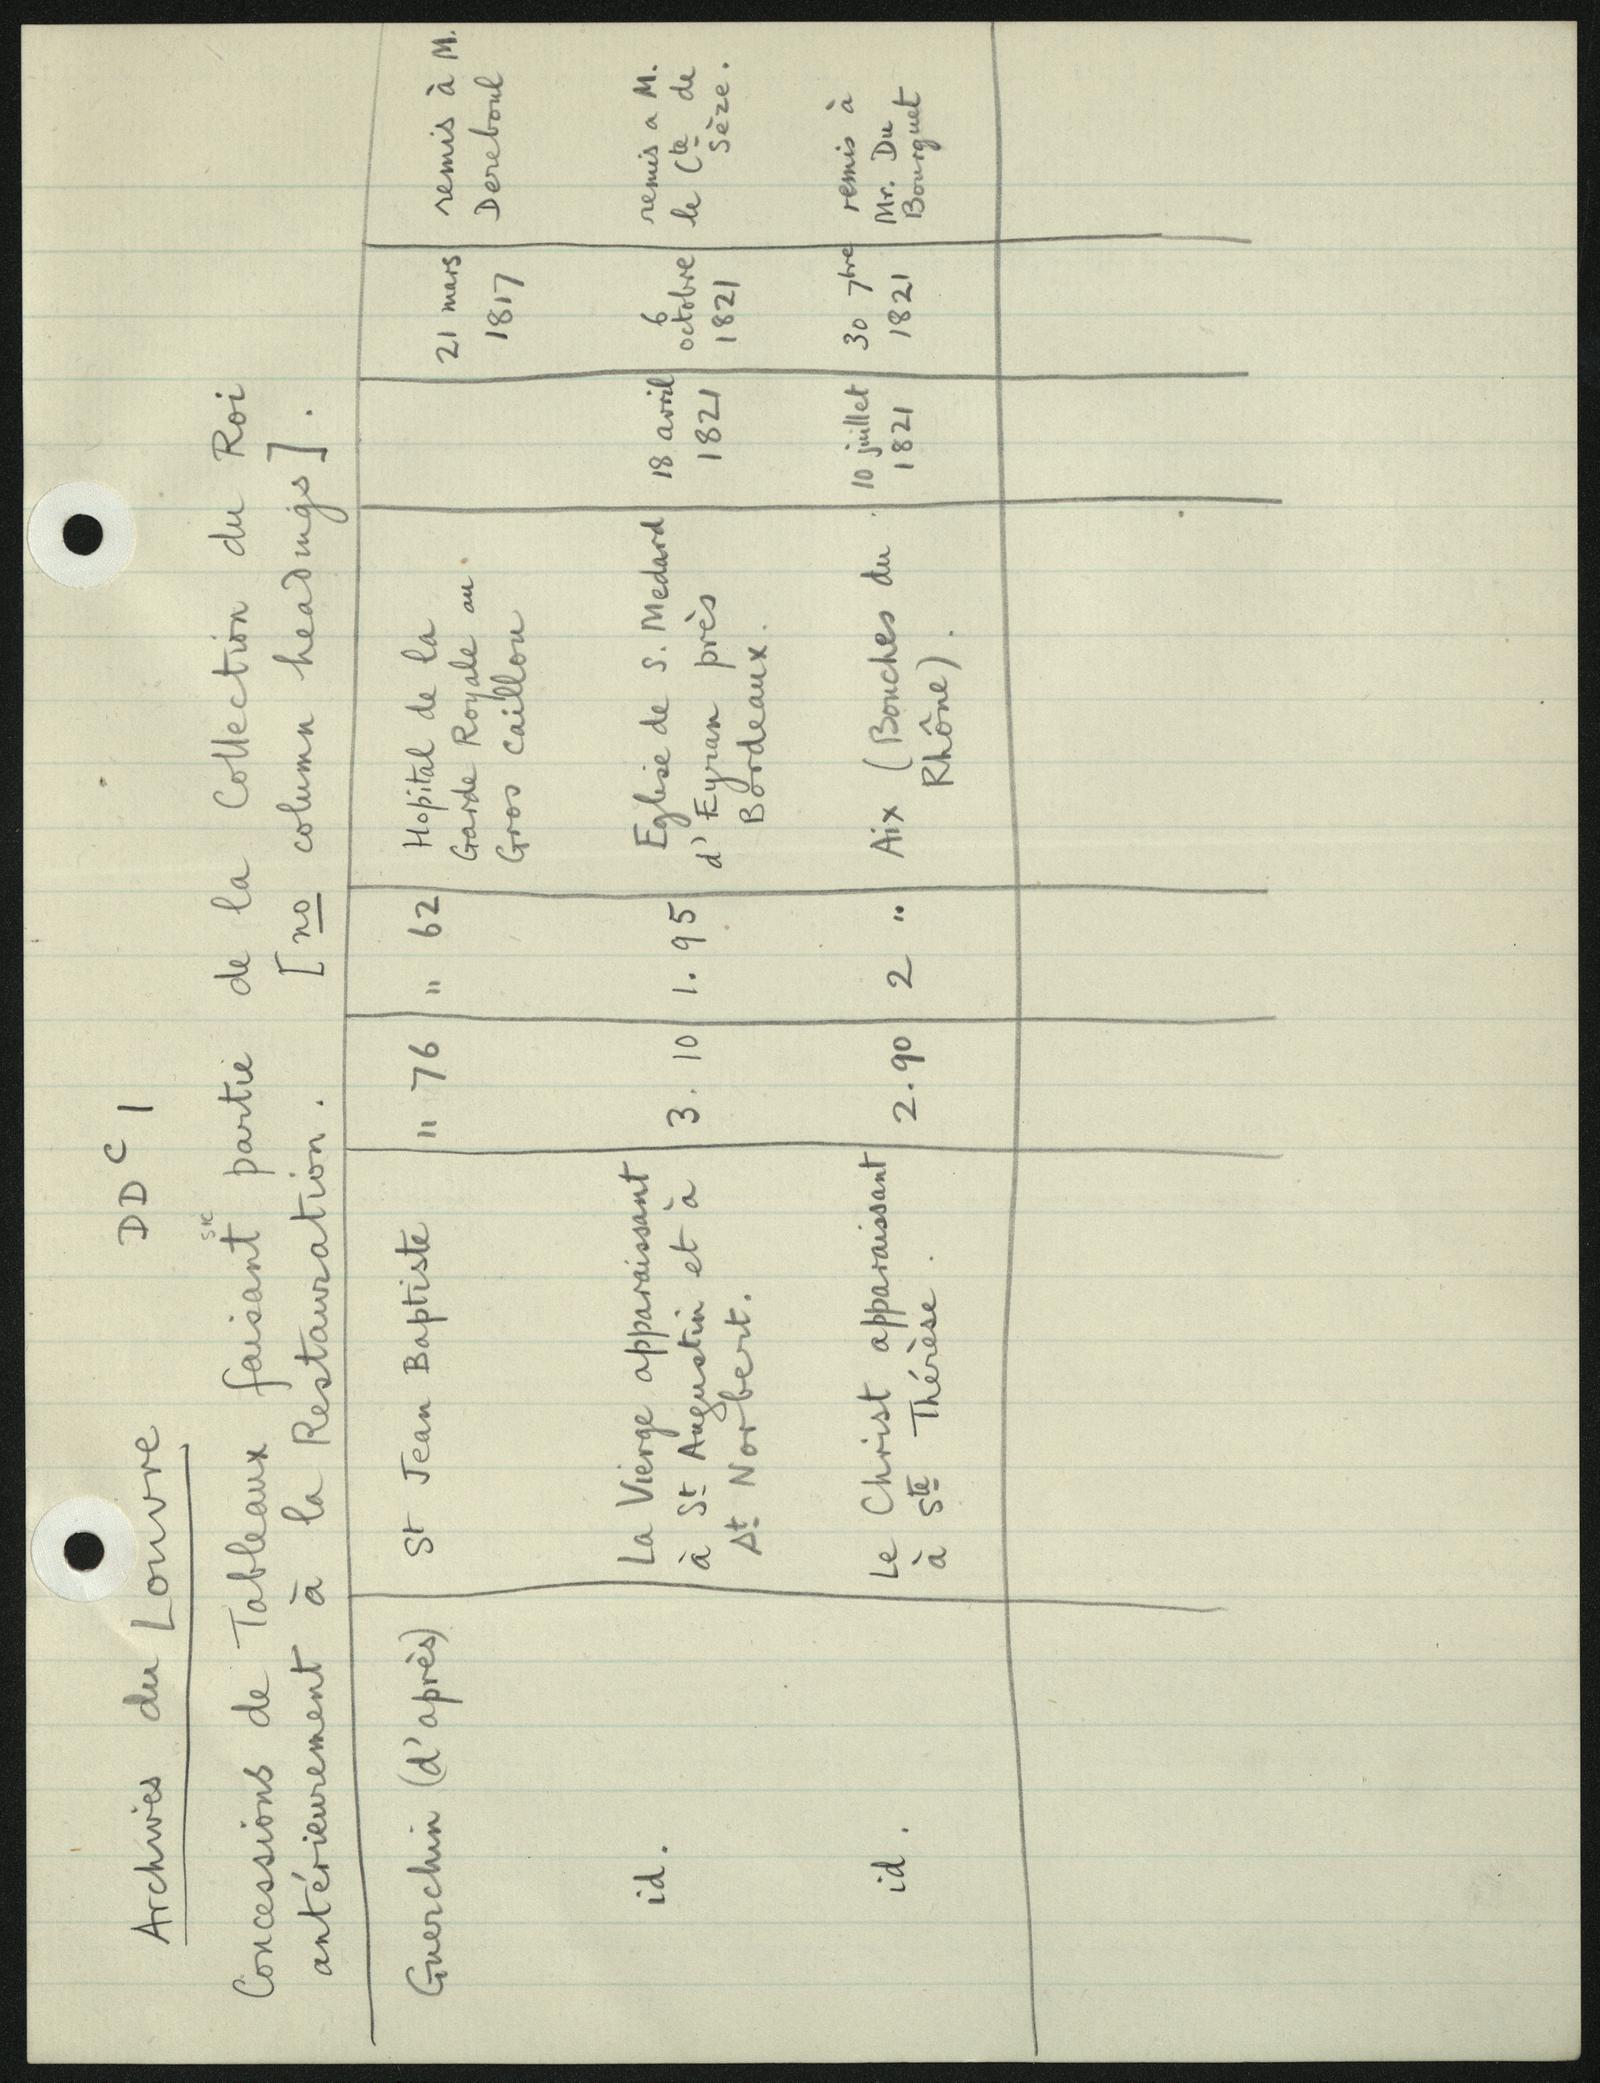 Archives du Louvre DD^c 1
Concessions de Tableaux faisant ^sic partie de la Collection du Roi
antérieurement à la Restauration. [no column headings].
Guerchin (d'après) St Jean Baptiste " 76 " 62 Hopital de la 21 mars remis à M.
Garde Royale au 1817 Dereboul
Gros Caillou
id. La Vierge apparaissant 3. 10 1. 95 Eglise de S. Medard 18 avril 6 remis a M.
à St Augustin et à d'Eyran près 1821 octobre le Cte de
St Norbert. Bordeaux. 1821 Sèze.
id. Le Christ apparaissant 2.90 2 " Aix (Bouches du 10 juillet 30 7bre remis à
à Ste Thérèse. Rhône). 1821 1821 Mr. Du
Bourguet